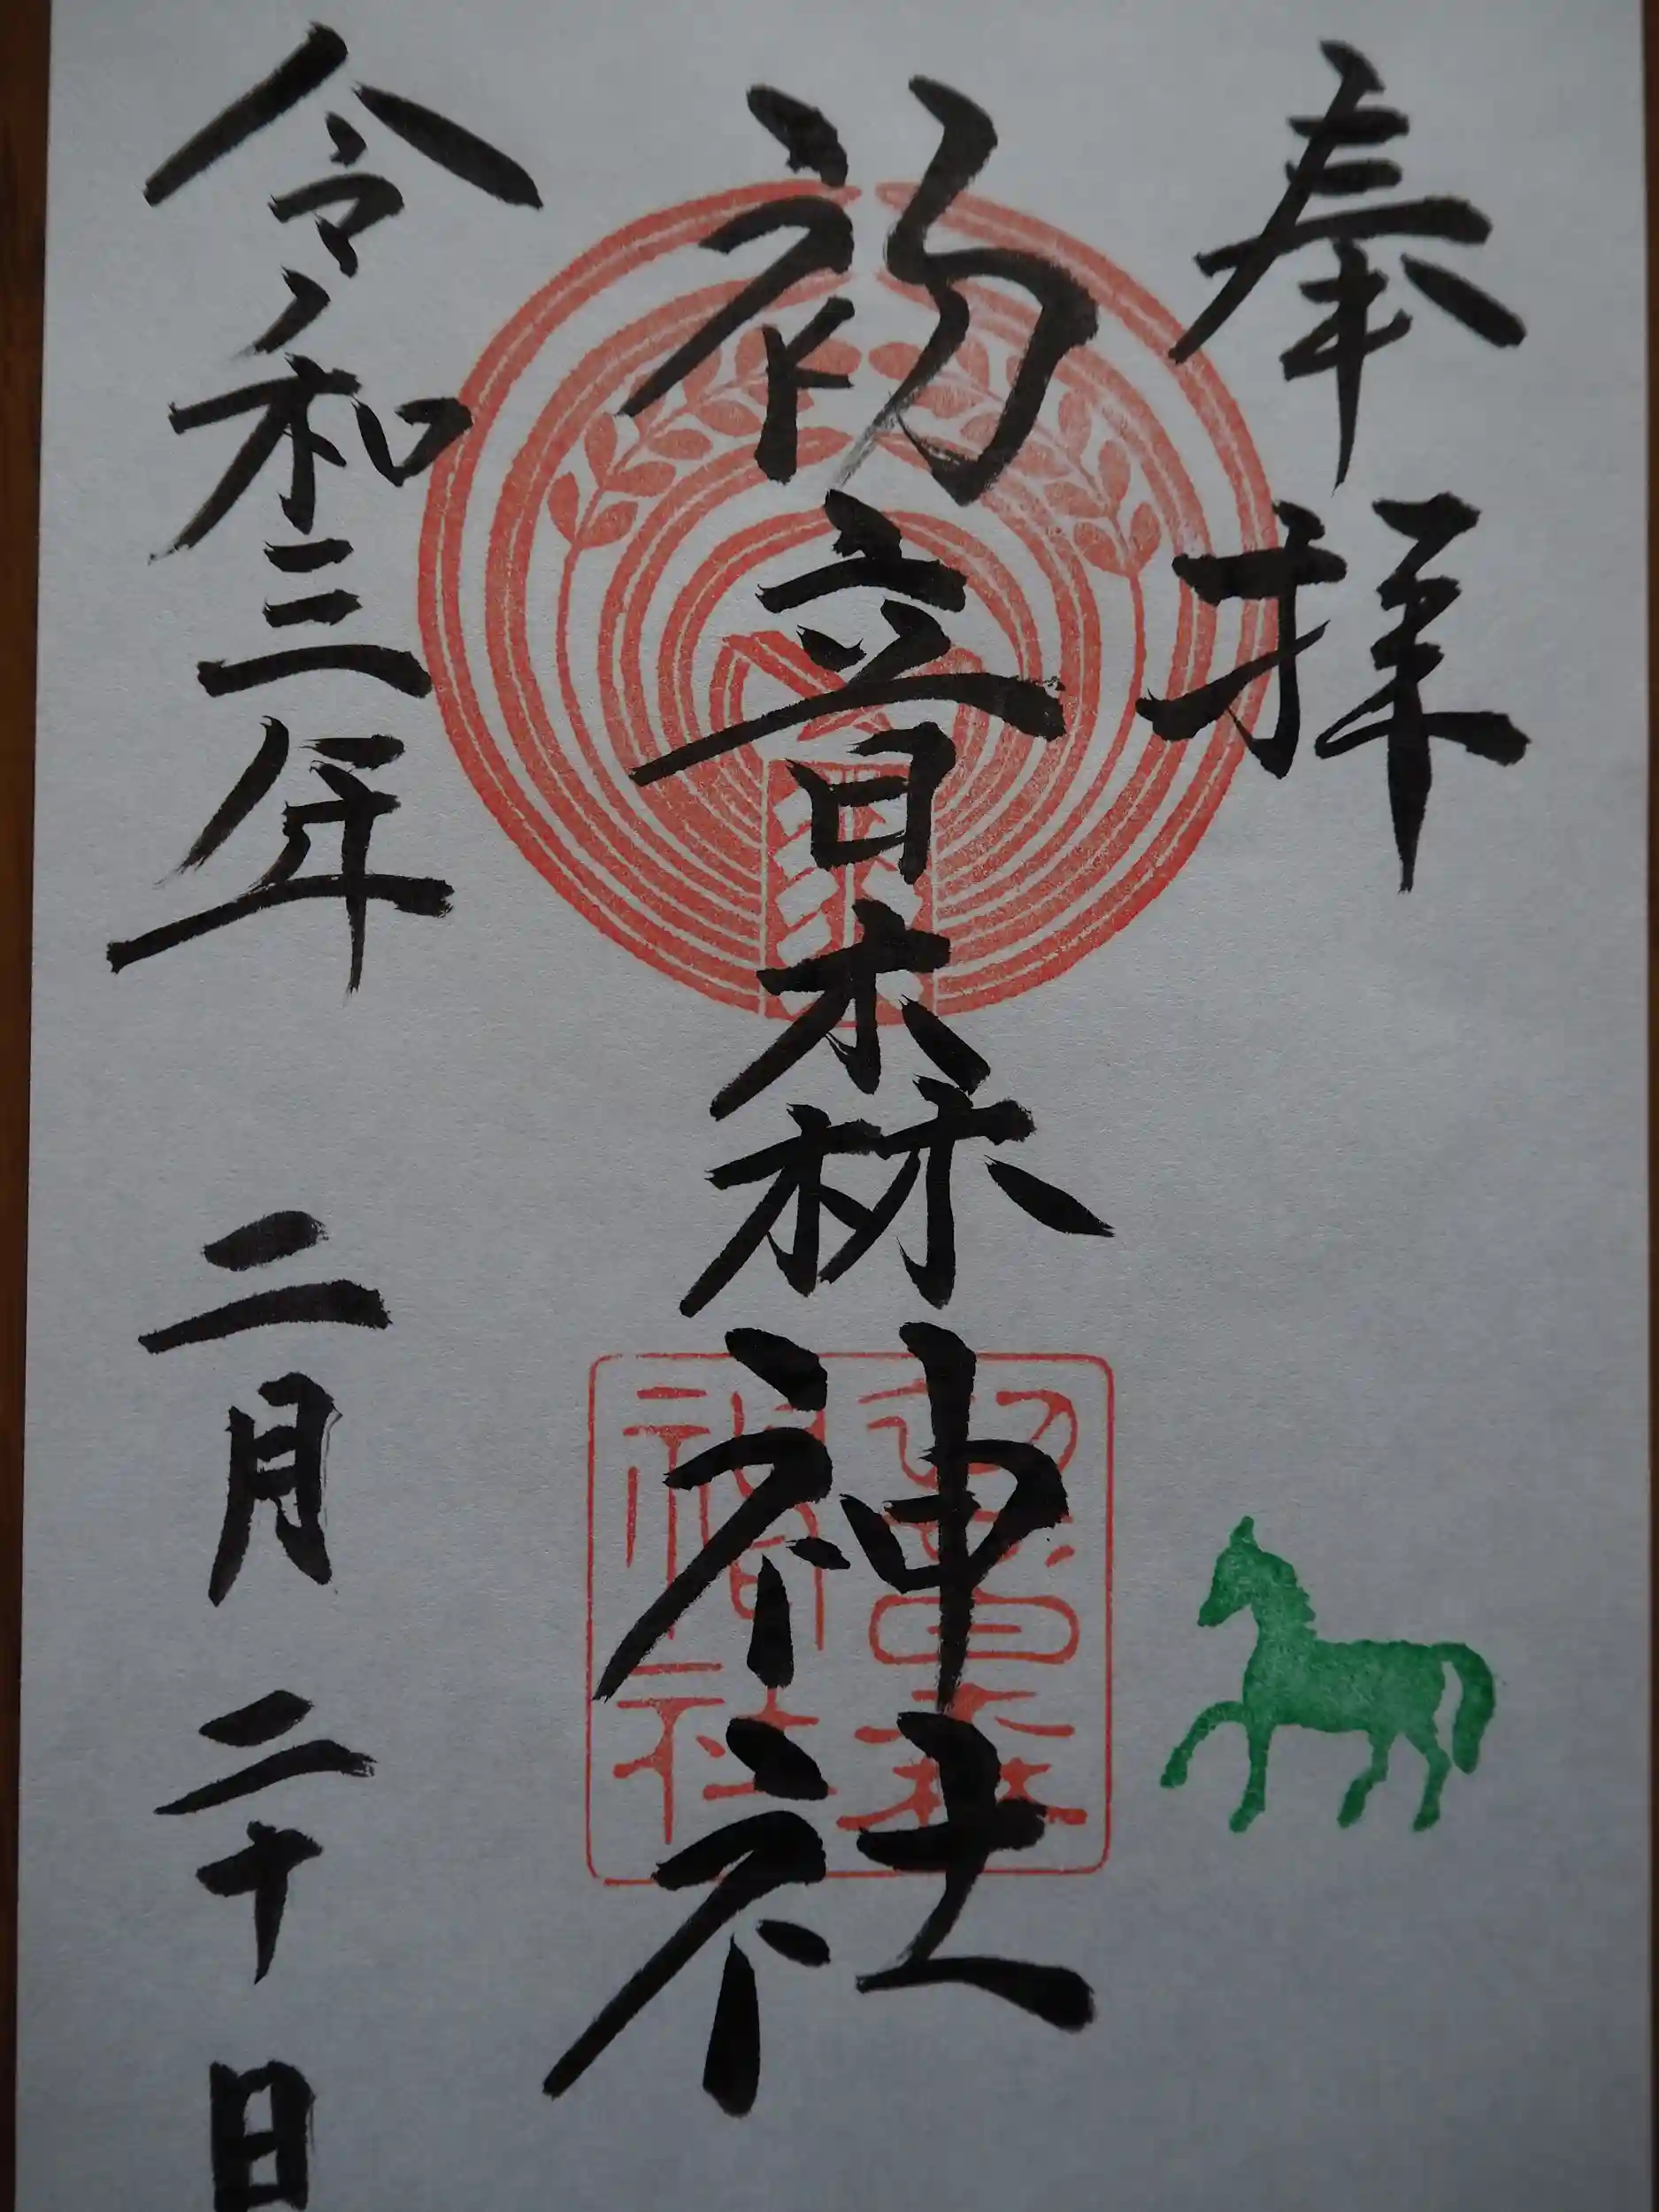 奉拝
初音森神社
初音森
神社
令和三年 二月 二十日